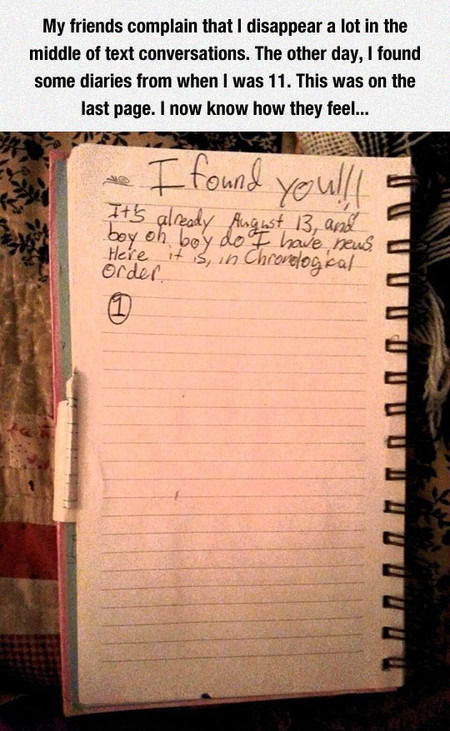 My friends complain that I disappear a lot in the
middle of text conversations. The other day, I found
some diaries from when I was 11. This was on the
last page. I now know how they feel...
I found you!!!
It's already August 13, and
boy oh boy do I have news.
Here it is, in Chronological
Order.
1